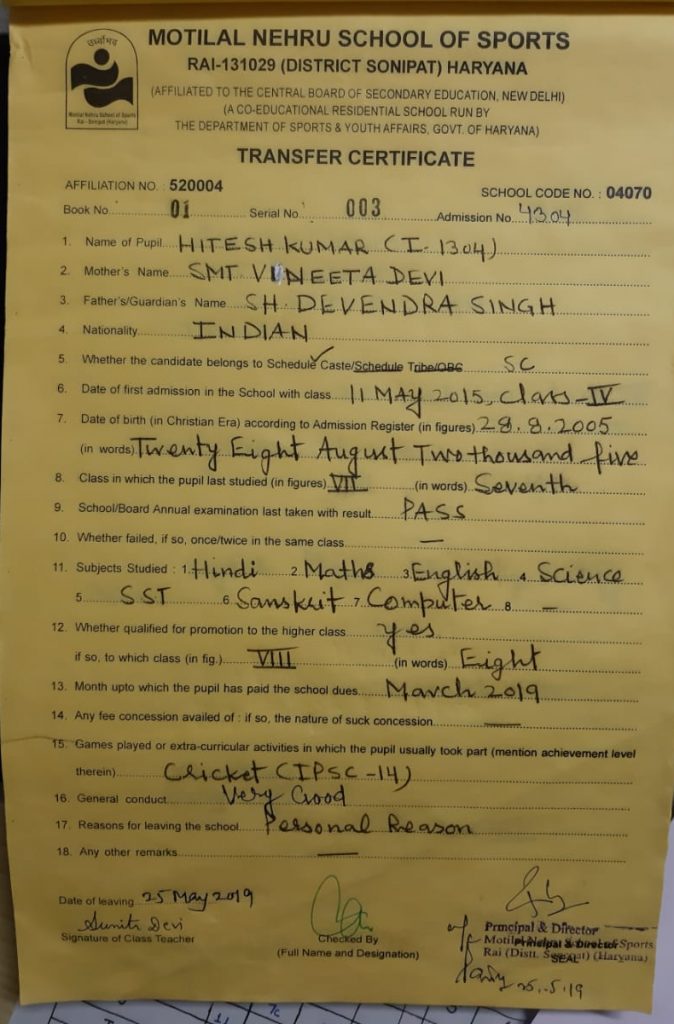 उत्तिष्ठत
Motilal Nehru School of Sports
Rai - Sonipat (Haryana)
MOTILAL NEHRU SCHOOL OF SPORTS
RAI-131029 (DISTRICT SONIPAT) HARYANA
(AFFILIATED TO THE CENTRAL BOARD OF SECONDARY EDUCATION, NEW DELHI)
(A CO-EDUCATIONAL RESIDENTIAL SCHOOL RUN BY
THE DEPARTMENT OF SPORTS & YOUTH AFFAIRS, GOVT. OF HARYANA)
TRANSFER CERTIFICATE
AFFILIATION NO. : 520004 SCHOOL CODE NO. : 04070
Book No. 01 Serial No. 003 Admission No. 4304
1. Name of Pupil HITESH KUMAR (I-1304)
2. Mother's Name SMT. VINEETA DEVI
3. Father's/Guardian's Name SH. DEVENDRA SINGH
4. Nationality INDIAN
5. Whether the candidate belongs to Schedule Caste/Schedule Tribe/OBC SC
6. Date of first admission in the School with class 11 MAY 2015, Class-IV
7. Date of birth (in Christian Era) according to Admission Register (in figures) 28.8.2005
(in words) Twenty Eight August Two thousand five
8. Class in which the pupil last studied (in figures) VII (in words) Seventh
9. School/Board Annual examination last taken with result PASS
10. Whether failed, if so, once/twice in the same class —
11. Subjects Studied : 1. Hindi 2. Maths 3. English 4. Science
5. SST 6. Sanskrit 7. Computer 8. —
12. Whether qualified for promotion to the higher class yes
if so, to which class (in fig.) VIII (in words) Eight
13. Month upto which the pupil has paid the school dues March 2019
14. Any fee concession availed of : if so, the nature of suck concession —
15. Games played or extra-curricular activities in which the pupil usually took part (mention achievement level
therein) Cricket (IPSC-14)
16. General conduct Very Good
17. Reasons for leaving the school Personal Reason
18. Any other remarks —
Date of leaving 25 May 2019
Suniti Devi
Signature of Class Teacher
Checked By
(Full Name and Designation)
Principal & Director
Motilal Nehru School of Sports
Principal & Director
Rai (Distt. Sonepat) (Haryana)
SEAL
25.5.19